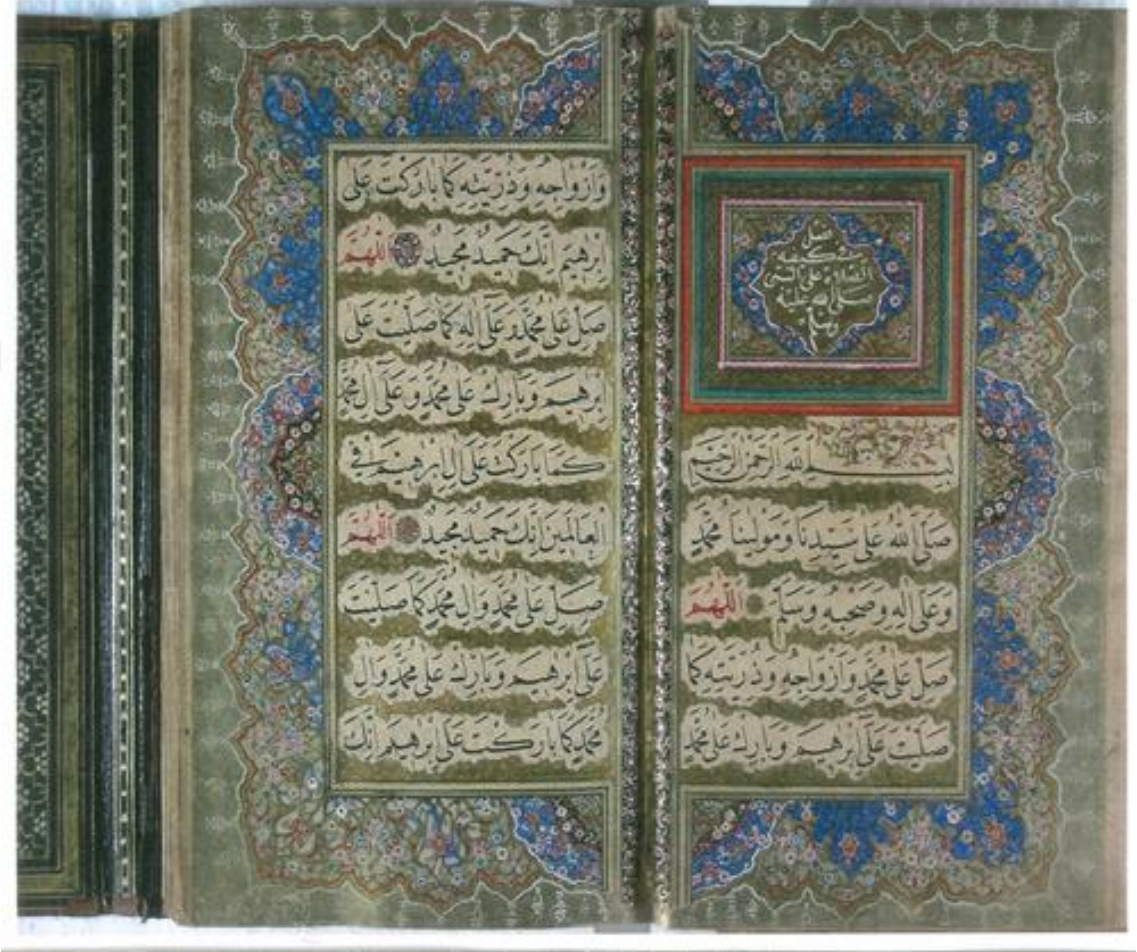 فصل
في كيفية
الصلاة على النبي
صلى الله عليه
وسلم
بسم الله الرحمن الرحيم
صلى الله على سيدنا ومولينا محمد
وعلى اله وصحبه وسلم اللهم
صل على محمد وازواجه وذريته كما
صليت على ابرهيم وبارك على محمد
وازواجه وذريته كما باركت على
ابرهيم انك حميد مجيد اللهم
صل على محمد وعلى اله كما صليت على
ابرهيم وبارك على محمد وعلى ال محمد
كما باركت على ال ابرهيم في
العالمين انك حميد مجيد اللهم
صل على محمد وال محمد كما صليت
على ابرهيم وبارك على محمد وال
محمد كما باركت على ابرهيم انك